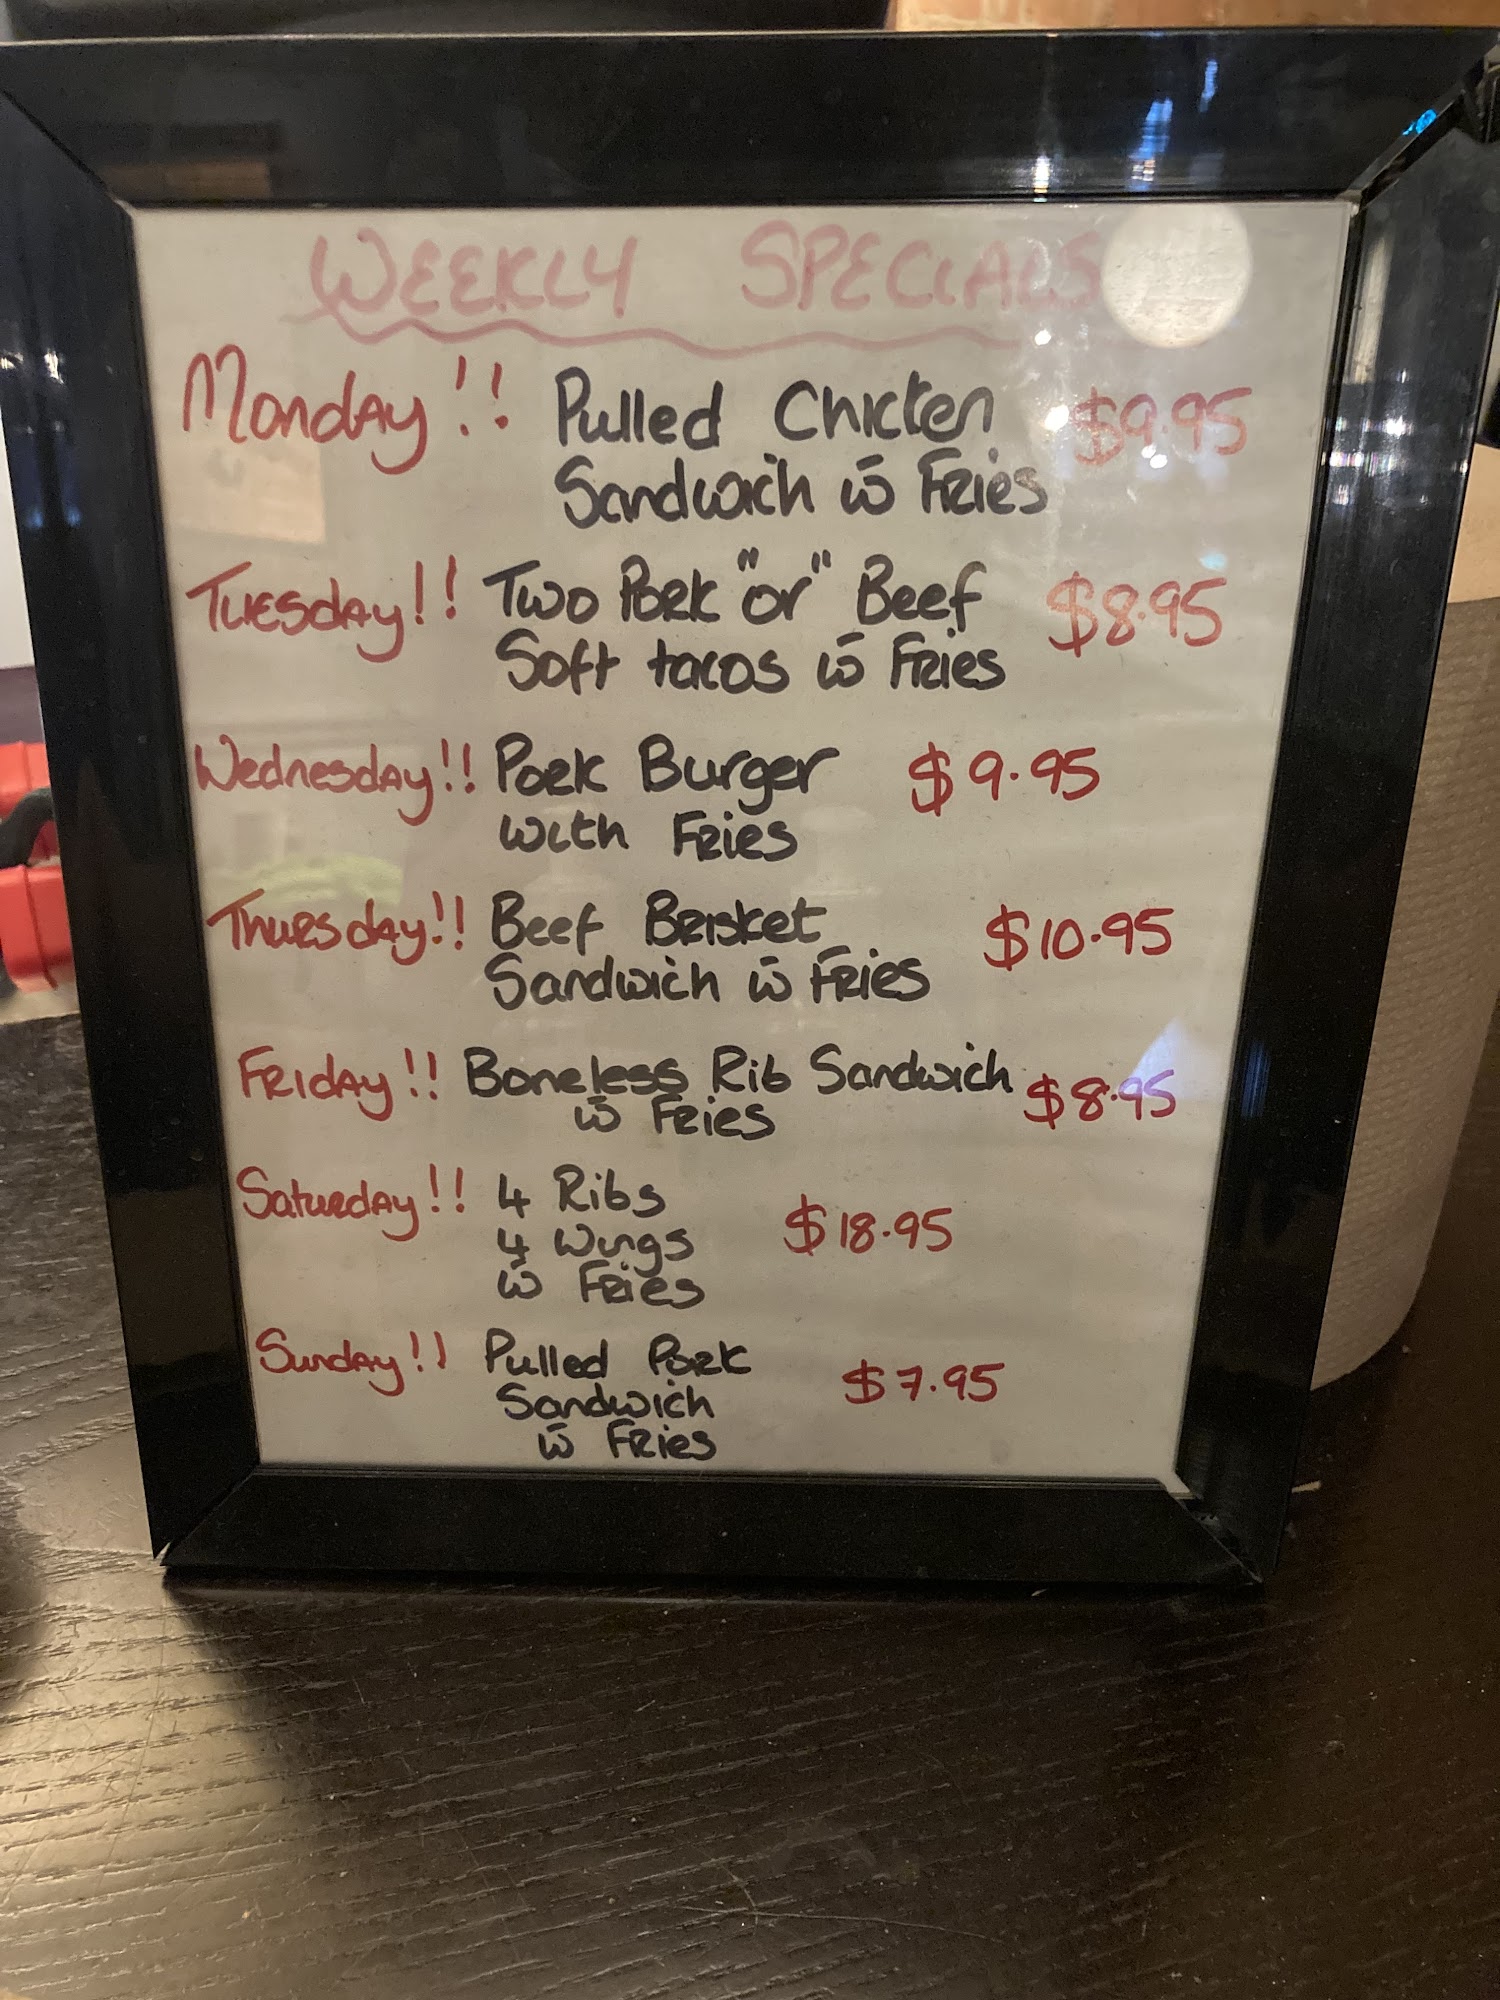 WEEKLY SPECIALS
Monday!! Pulled Chicken $9.95
Sandwich w̄ Fries
Tuesday!! Two Pork "or" Beef $8.95
Soft tacos w̄ Fries
Wednesday!! Pork Burger $9.95
with Fries
Thursday!! Beef Brisket $10.95
Sandwich w̄ Fries
Friday!! Boneless Rib Sandwich $8.95
w̄ Fries
Saturday!! 4 Ribs $18.95
4 Wings
w̄ Fries
Sunday!! Pulled Pork $7.95
Sandwich
w̄ Fries